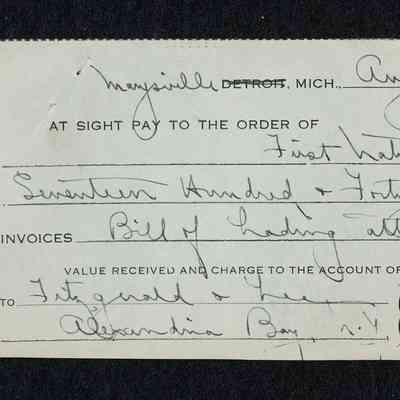 Maysville DETROIT, MICH., Au
AT SIGHT PAY TO THE ORDER OF
First Nat
Seventeen Hundred & Fort
INVOICES Bill of Lading att
VALUE RECEIVED AND CHARGE TO THE ACCOUNT OF
TO Fitzgerald & Lee
Alexandria Bay, N.Y.